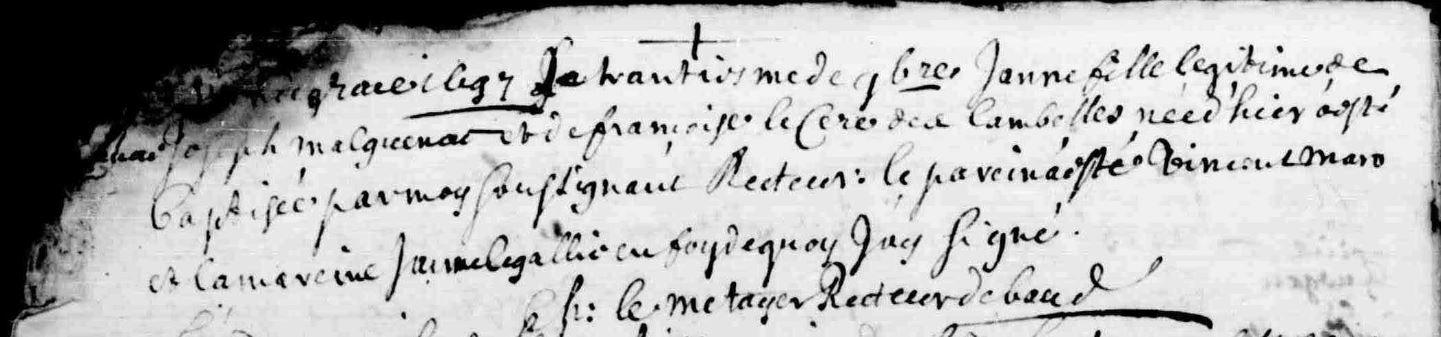 de grace 1697 Le trantiesme de 9bre Janne fille legitime de
Joseph malguenac et de françoise le Cere de lambelles née d'hier a esté
baptisée par moy soussignant Recteur: le parein a esté Vincent maro
et la mareine Janne le gallic en foy de quoy J'ay signé.
h: le metayer Recteur de baud